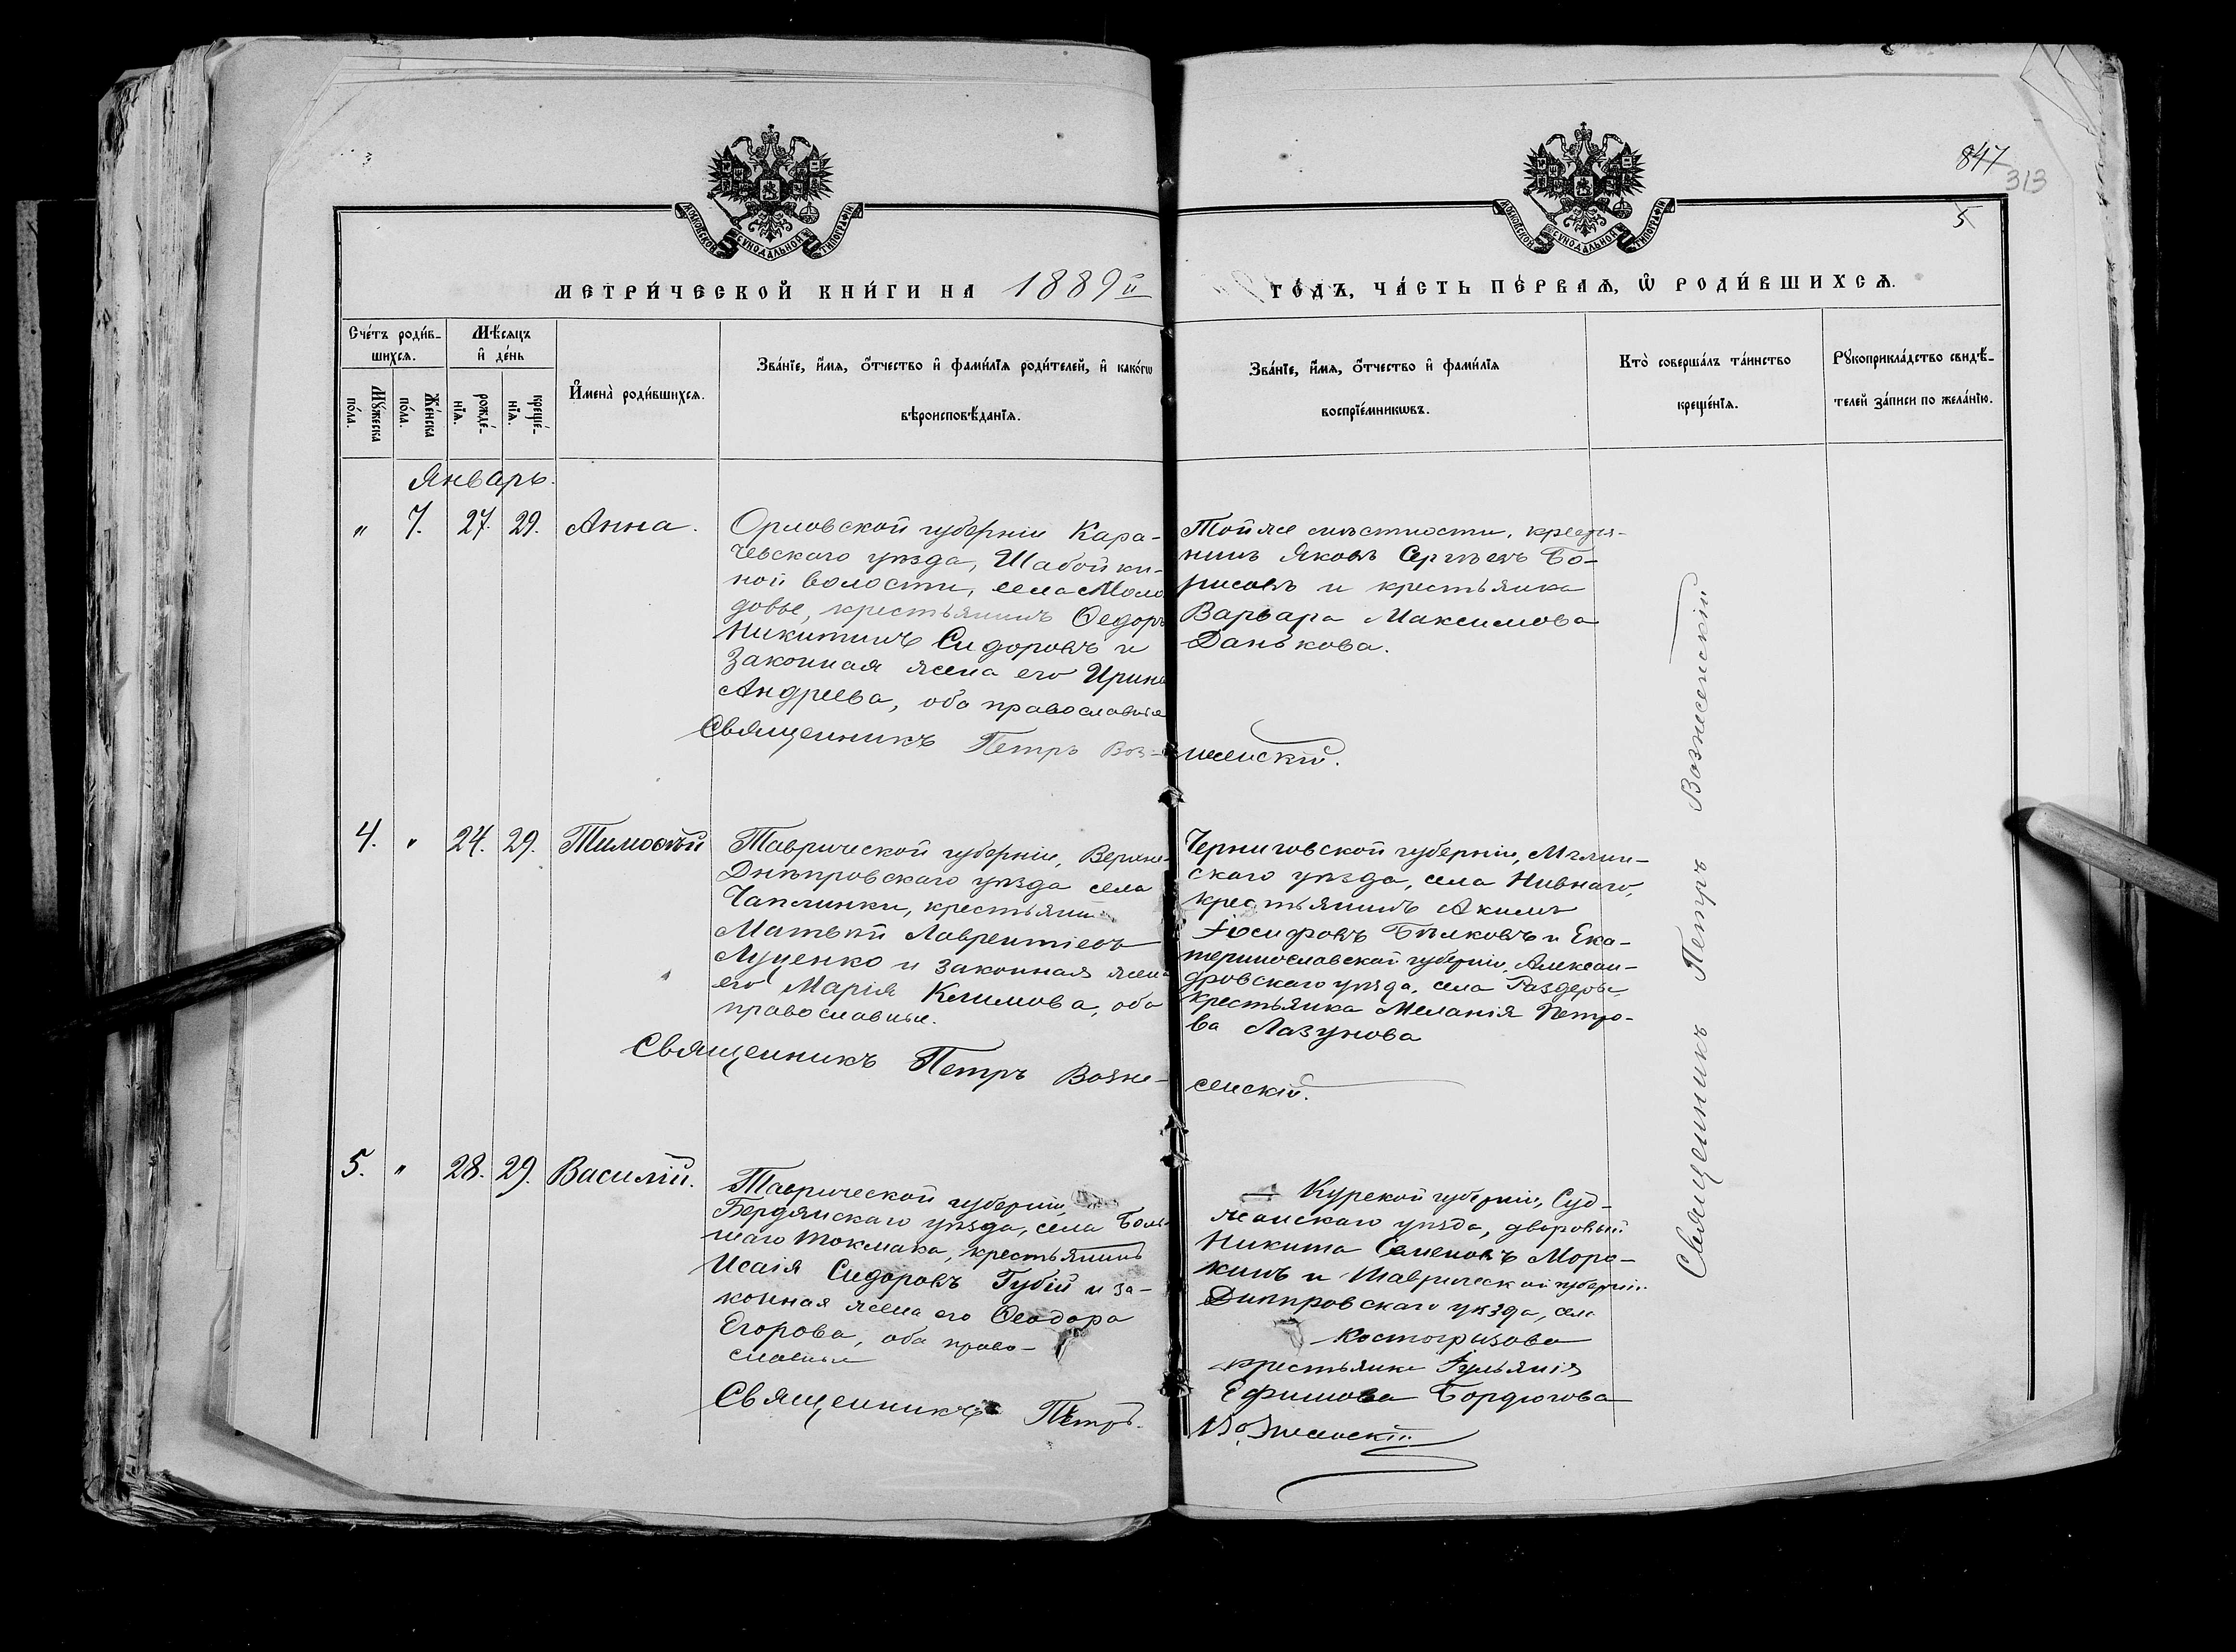 847
313
5
МОСКОВСКОЙ СѴНОДАЛЬНОЙ ТИПОГРАФІИ
МОСКОВСКОЙ СѴНОДАЛЬНОЙ ТИПОГРАФІИ
МЕТРИ́ЧЕСКОЙ КНИ́ГИ НА 1889й
ГО́ДЪ, ЧА́СТЬ ПЕ́РВАѦ, Ѽ РОДИ́ВШИХСѦ.
Сче́тъ роди́в-
шихсѧ.
Мꙋ́жеска
по́ла.
Же́нска
по́ла.
Мѣ́сѧцъ
и҆ де́нь
рожде́-
нїѧ.
креще́-
нїѧ.
И҆мена̀ роди́вшихсѧ.
Зва́нїе, и҆́мѧ, ѻ҆́тчество и҆ фами́лїѧ роди́телей, и҆ како́гѡ
вѣроисповѣ́данїѧ.
Зва́нїе, и҆́мѧ, ѻ҆́тчество и҆ фами́лїѧ
воспрїе́мникѡвъ.
Кто̀ соверша́лъ та́инство
креще́нїѧ.
Рꙋкоприкла́дство свидѣ́-
телей за́писи по жела́нїю.
Январь.
" 7. 27. 29. Анна.
Орловской губерніи Кара-
чевскаго уѣзда, Шабойки-
ной волости, села Моло
довье, крестьянинъ Ѳедоръ
Никитинъ Сидоровъ и
законная жена его Ирина
Андреева, оба православные
Священникъ Петръ Воз-
Той же мѣстности, крестья-
нинъ Яковъ Сергѣевъ Бо-
рисовъ и крестьянка
Варвара Максимова
Данькова.
несенскій.
4. " 24. 29. Тимоѳей
Таврической губерніи, Верхне-
Днѣпровскаго уѣзда села
Чаплинки, крестьянин
Матвѣй Лаврентіевъ
Луценко и законная жена
его Марія Климова, оба
православные.
Священникъ Петръ Возне-
Черниговской губерніи, Мглин-
скаго уѣзда, села Нивнаго,
крестьянинъ Акимъ
Іосифовъ Бѣлковъ и Ека-
теринославской губерніи, Алексан-
дровскаго уѣзда, села Раздоры,
крестьянка Меланія Петро-
ва Лазунова
сенскій.
5. " 28. 29. Василій.
Таврической губерніи,
Бердянскаго уѣзда, села Боль
шаго Токмака, крестьянинъ
Исаія Сидоровъ Губій и за-
конная жена его Ѳеодора
Егорова, оба право-
славные
Священникъ Петръ.
Курской губерніи, Суд-
жанскаго уѣзда, дворовый
Никита Семеновъ Моро-
кинъ и Таврической губерніи
Днѣпровскаго уѣзда, села
Костогризова
крестьянка Іульянія
Ефимова Бордюгова
Вознесенскій
Священникъ Петръ Вознесенскій